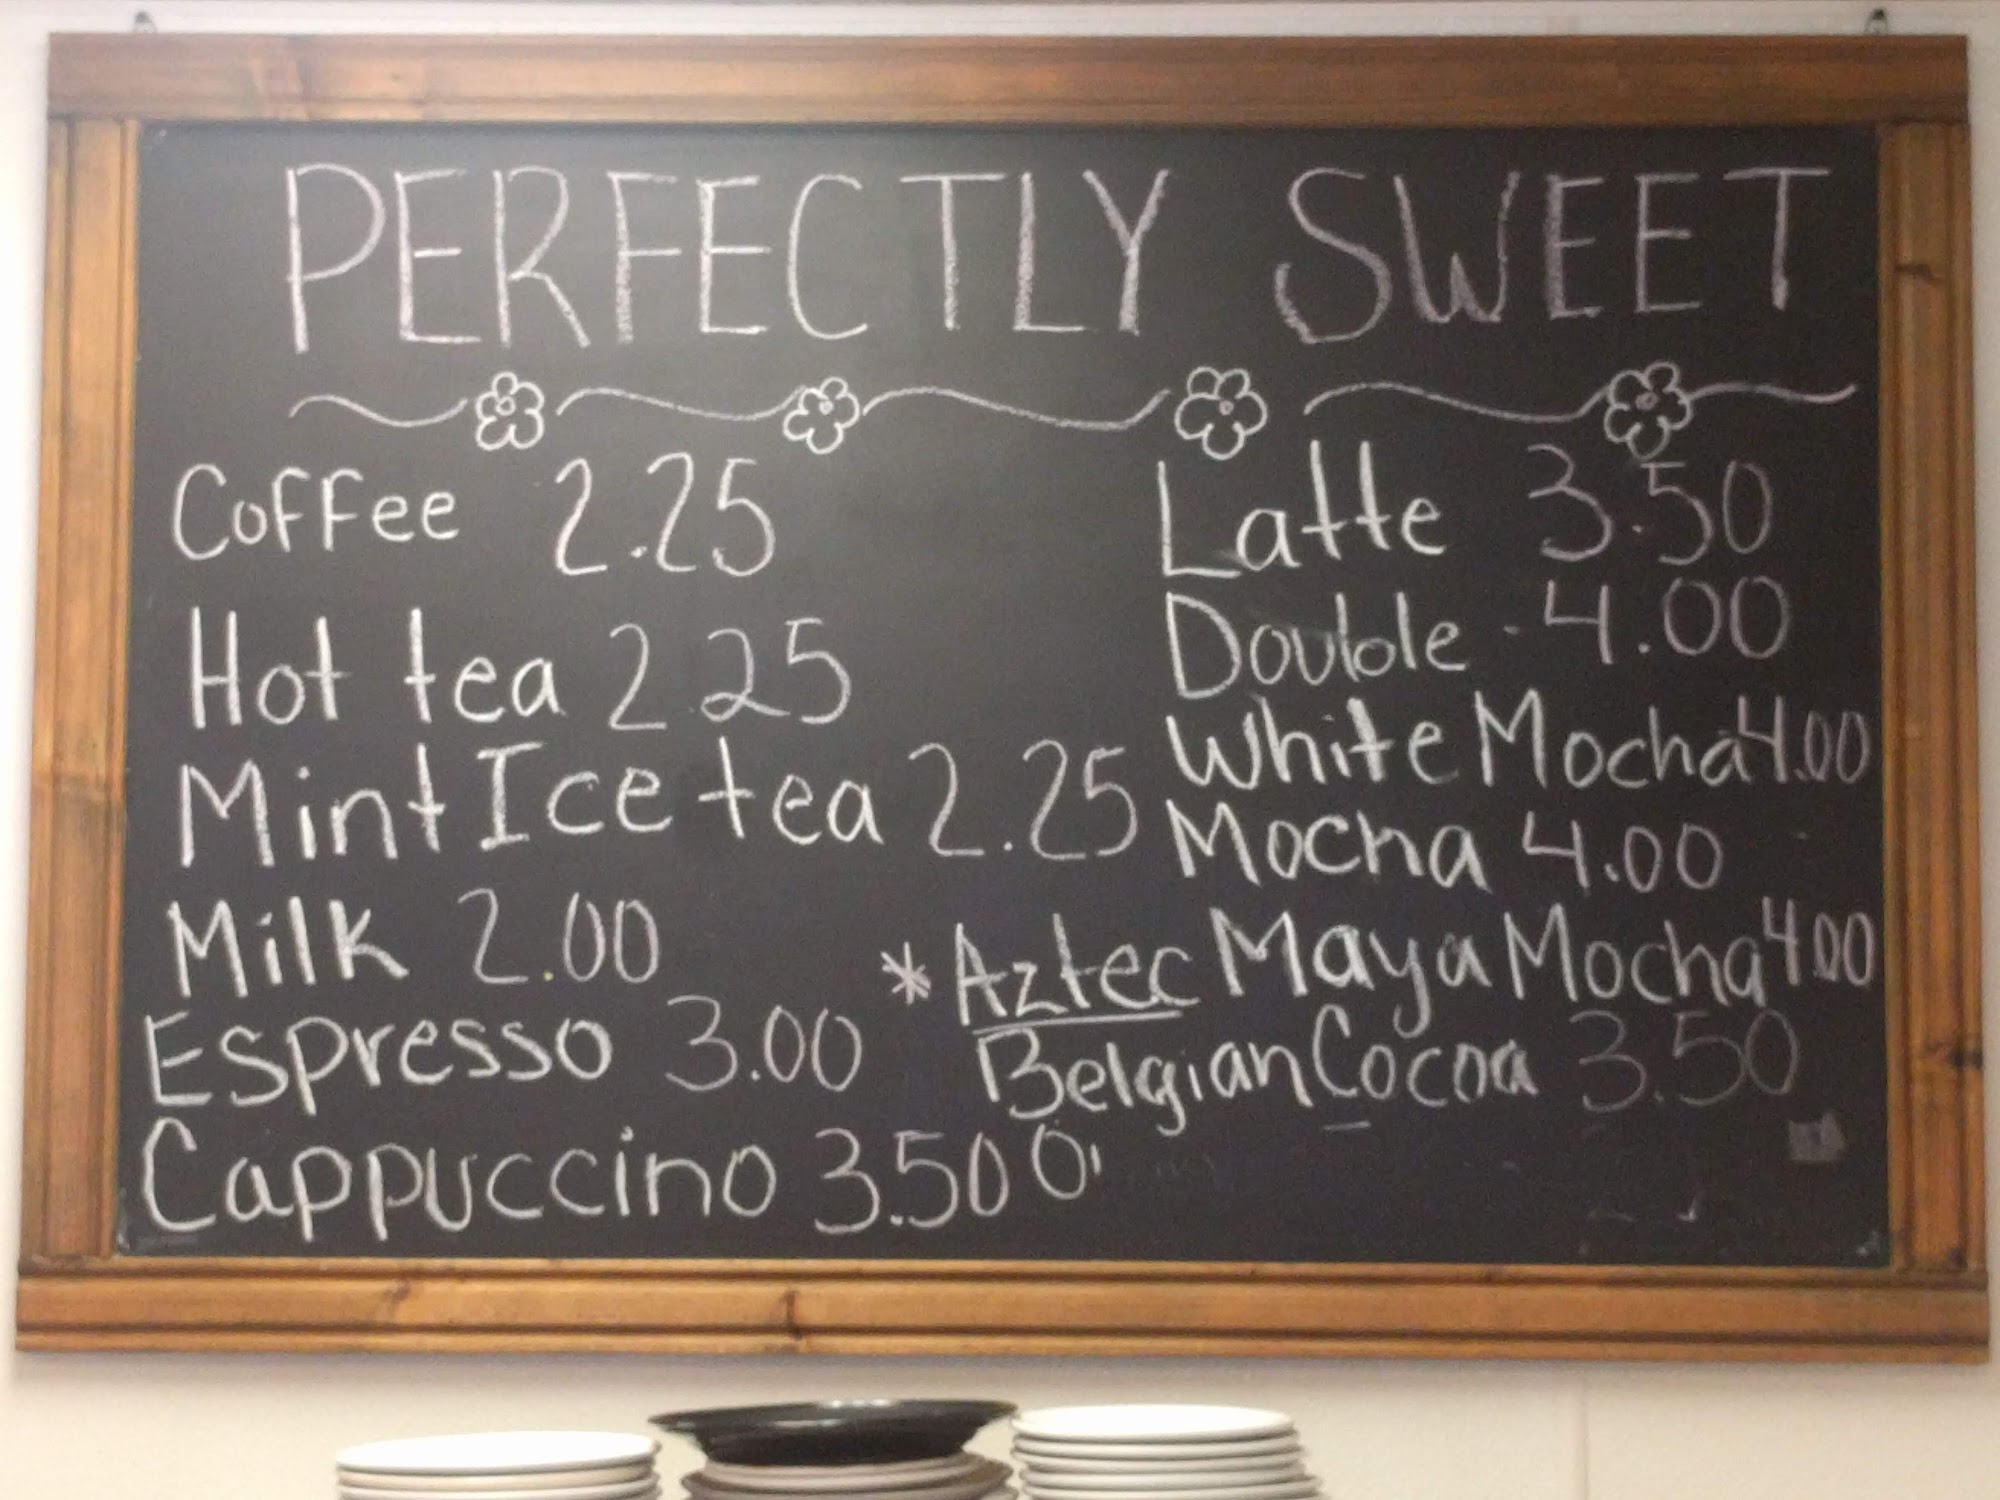 PERFECTLY SWEET
Coffee 2.25
Hot tea 2.25
Mint Ice tea 2.25
Milk 2.00
Espresso 3.00
Cappuccino 3.50 0
Latte 3.50
Double - 4.00
White Mocha 4.00
Mocha 4.00
* Aztec Maya Mocha 4.00
Belgian Cocoa 3.50